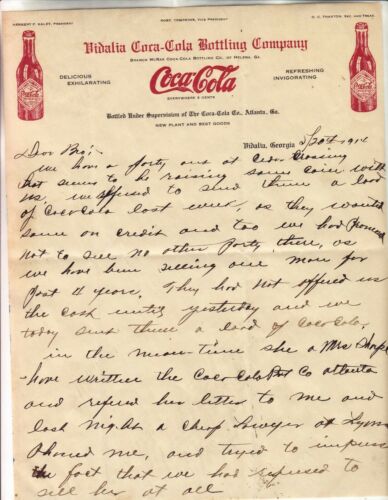 HERBERT P. HALEY, PRESIDENT
ROBT. TOMPKINS, VICE PRESIDENT
SEC. AND TREAS.
Vidalia Coca-Cola Bottling Company
BRANCH MCRAE COCA-COLA BOTTLING CO., OF HELENA, GA.
DELICIOUS
EXHILARATING
Coca-Cola
EVERYWHERE 5 CENTS
REFRESHING
INVIGORATING
Bottled Under Supervision of The Coca-Cola Co., Atlanta, Ga.
NEW PLANT AND BEST GOODS
Vidalia, Georgia 1914
Dear Bro;
We have a party out at Cedar Crossing
that seems to be raising some cain with
us, we refused to send them a load
of CocaCola last week, as they wanted
same on credit and too we had promised
not to see no other party there, as
we have been seeing one man for
past 4 years. They had not offered us
the cash until yesterday and we
today sent them a load of CocaCola,
in the mean-time she a Mrs Sharpe
have written the CocaCola Co Atlanta
and refered her letter to me and
last night a cheap lawyer at Lyons
Phoned me, and tryed to impress
the fact that we had refused to
sell her at all